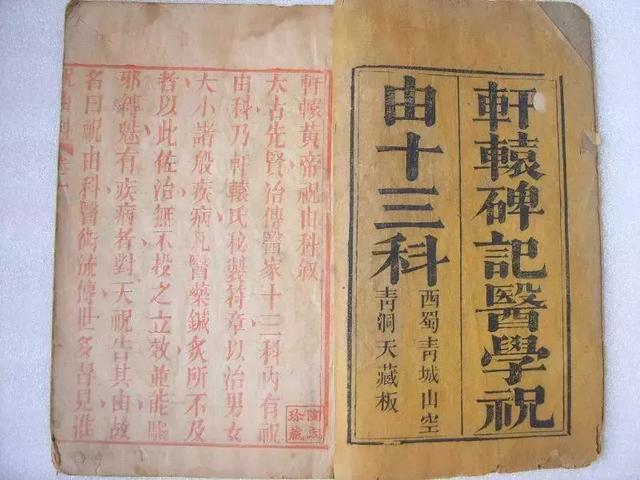 軒轅碑記醫學祝
由十三科
西蜀青城山空
青洞天藏板
軒轅黃帝祝由科叙
太古先賢治傳醫家十三科內有祝
由科乃軒轅氏秘製符章以治男女
大小諸般疾病凡醫藥鍼炙所不及
者以此佐治無不投之立效並能驅
邪縛魅有疾病者對天祝告其由故
名曰祝由科醫術流傳世多罕見誰
珍藏